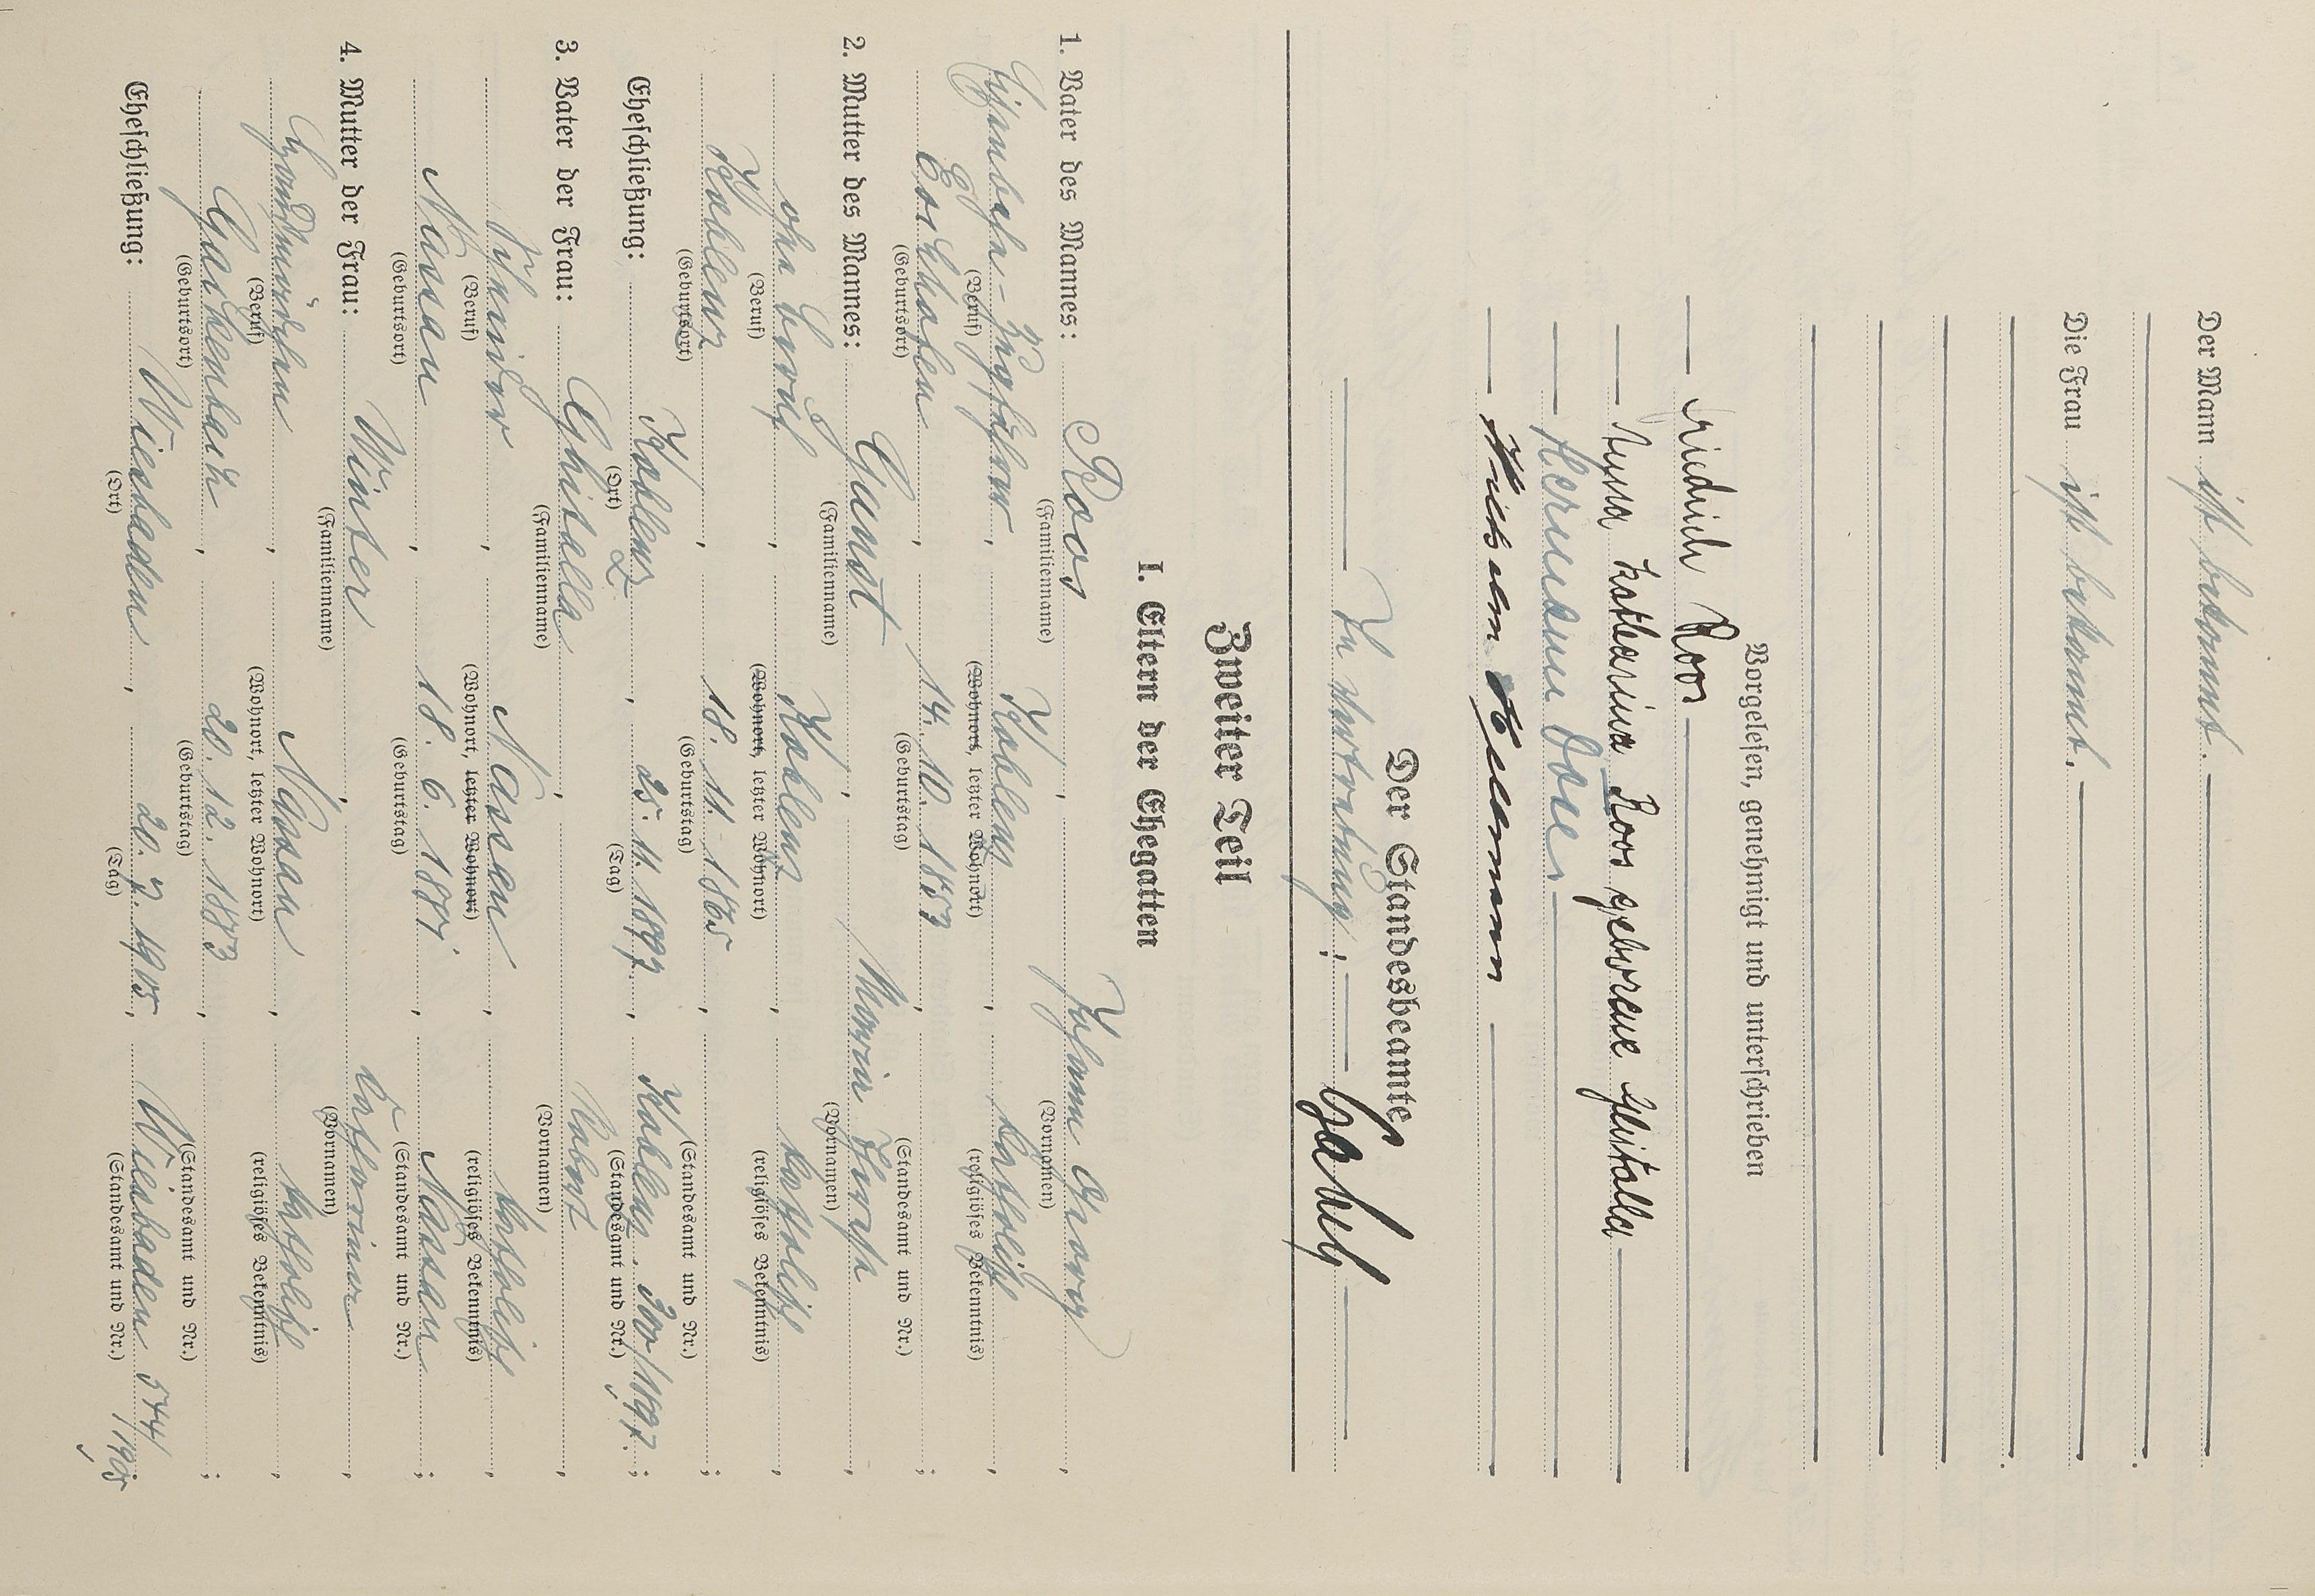 Der Mann ist bekannt.
Die Frau ist bekannt.
Vorgelesen, genehmigt und unterschrieben
Friedrich Roos
Anna Katharina Roos geborene Ghitalla
Hermann
Der Standesbeamte
In Vertretung:
Zweiter Teil
I. Eltern der Ehegatten
1. Vater des Mannes: Roos, Johann Georg,
(Familienname) (Vornamen)
Eisenbahn-Zugführer, Koblenz, katholisch,
(Beruf) (Wohnort, letzter Wohnort) (religiöses Bekenntnis)
14. 10. 1857, ;
(Geburtsort) (Geburtstag) (Standesamt und Nr.)
2. Mutter des Mannes: Gunst, Maria Theresia,
(Familienname) (Vornamen)
ohne Beruf, Koblenz, katholisch,
(Beruf) (Wohnort, letzter Wohnort) (religiöses Bekenntnis)
Koblenz, 18. 11. 1865, ;
(Geburtsort) (Geburtstag) (Standesamt und Nr.)
Eheschließung: Koblenz, 25. 11. 1897, Koblenz ;
(Ort) (Tag) (Standesamt und Nr.)
3. Vater der Frau: Ghitalla, Robert,
(Familienname) (Vornamen)
Schneider, Nassau, katholisch,
(Beruf) (Wohnort, letzter Wohnort) (religiöses Bekenntnis)
Nassau, 18. 6. 1881, Nassau ;
(Geburtsort) (Geburtstag) (Standesamt und Nr.)
4. Mutter der Frau: Winter, Katharina,
(Familienname) (Vornamen)
Nassau, katholisch,
(Beruf) (Wohnort, letzter Wohnort) (religiöses Bekenntnis)
Gackenbach, 20. 12. 1883, ;
(Geburtsort) (Geburtstag) (Standesamt und Nr.)
Eheschließung: Wiesbaden, 20. 7. 1905, Wiesbaden 544/1905
(Ort) (Tag) (Standesamt und Nr.)